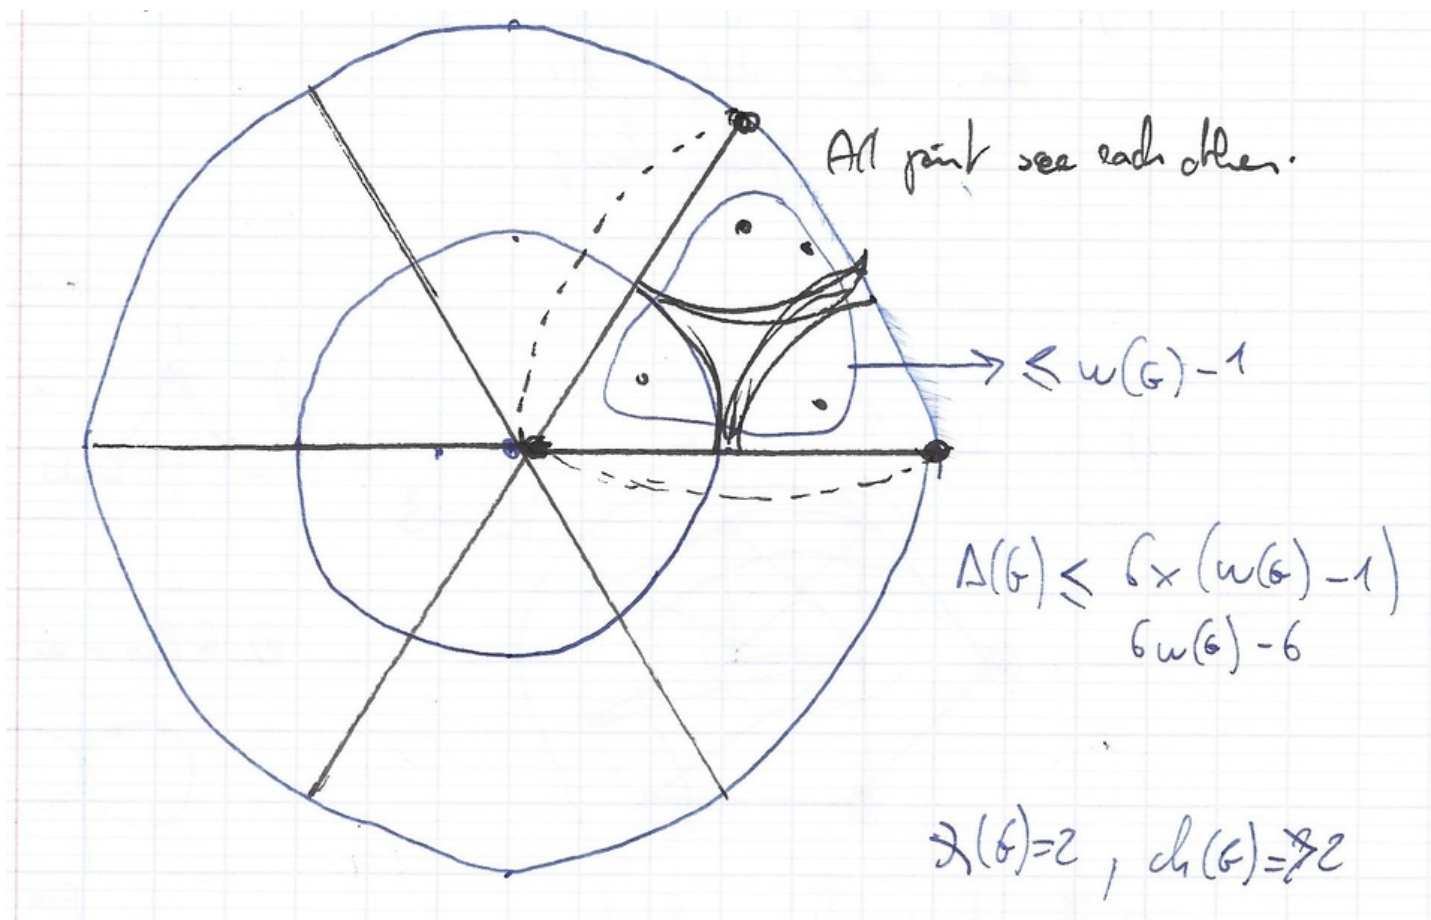 All point see each other.
≤ ω(G) - 1
Δ(G) ≤ 6x (ω(G) - 1)
6ω(G) - 6
χ(G)=2 , ch(G)=>2